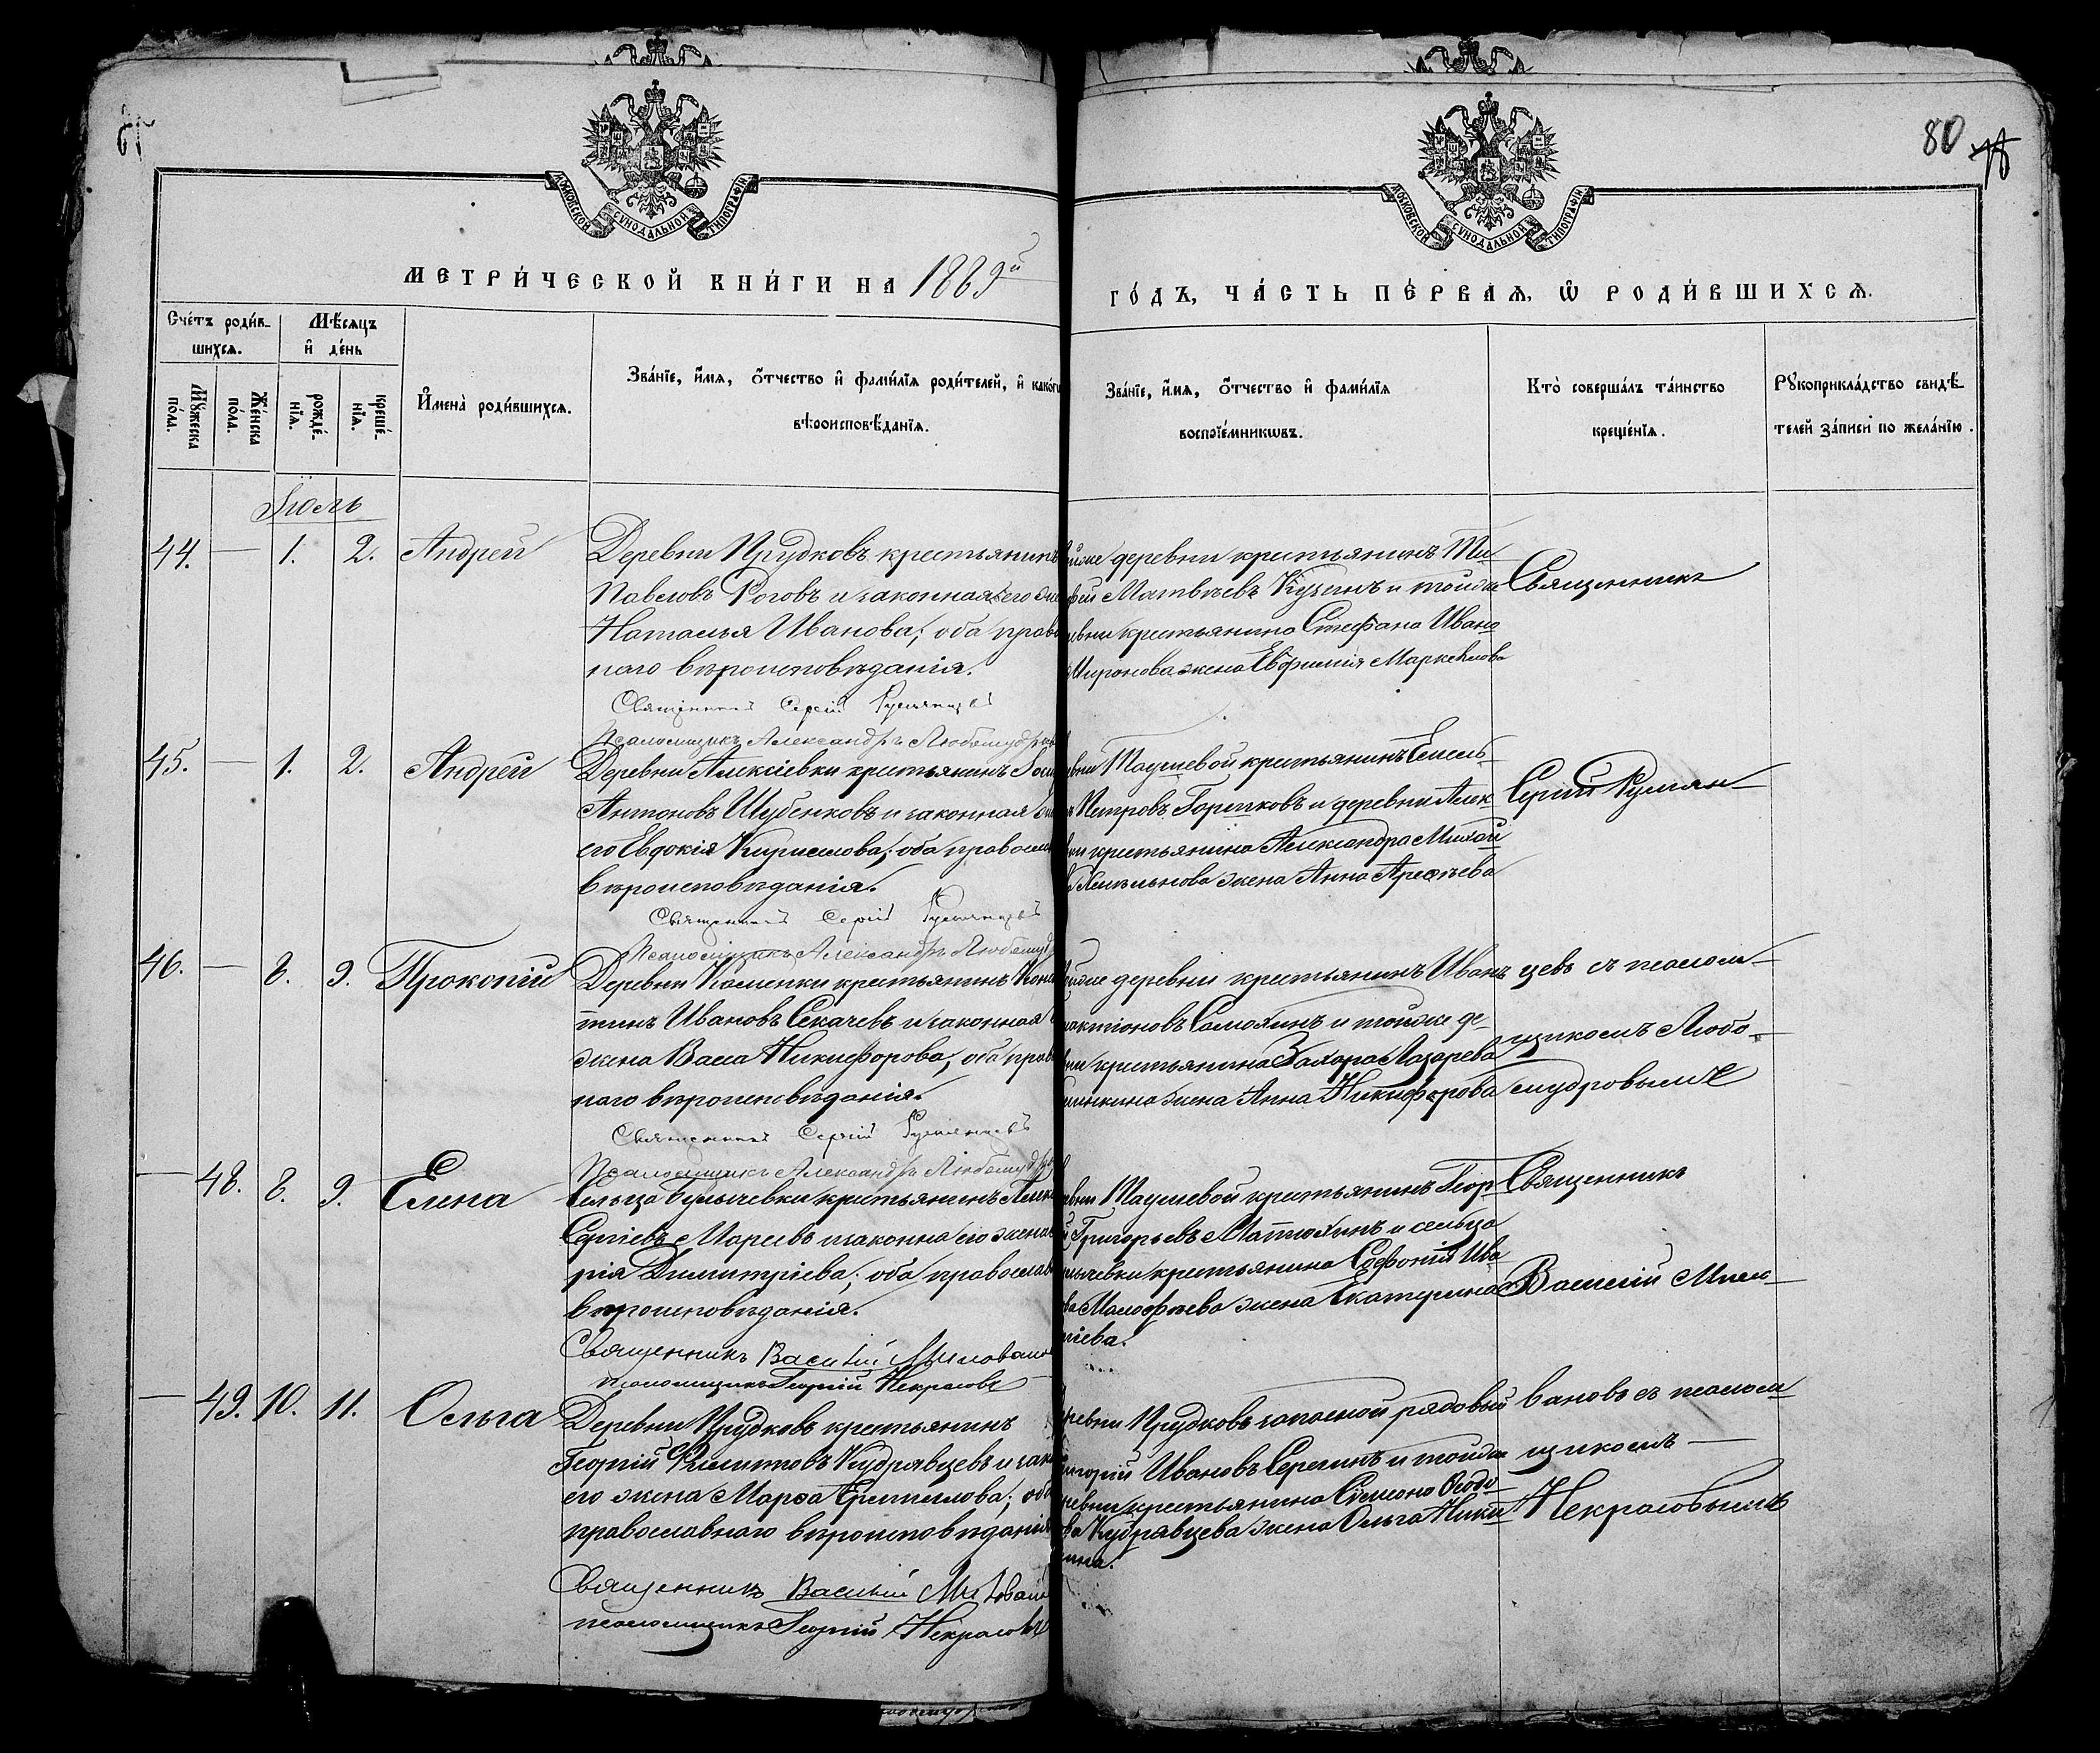 80 78
МОСКОВСКОЙ СѴНОДАЛЬНОЙ ТИПОГРАФІИ
МОСКОВСКОЙ СѴНОДАЛЬНОЙ ТИПОГРАФІИ
МЕТРИ́ЧЕСКОЙ КНИ́ГИ НА 1889й
ГО́ДЪ, ЧА́СТЬ ПЕ́РВАЯ, Ѿ РОДИ́ВШИХСЯ.
Сче́тъ роди́в-
шихся.
Мѣ́сяцъ
и҆ де́нь
Мꙋ́жеска по́ла.
Же́нска по́ла.
рожде́-нїя.
креще́-нїя.
И҆мена̀ роди́вшихся.
Зва́нїе, и҆́мя, ѻ҆́тчество и҆ фами́лїя роди́телей, и҆ како́гѡ
вѣроисповѣ́данїя.
Зва́нїе, и҆́мя, ѻ҆́тчество и҆ фами́лїя
воспрїе́мникѡвъ.
Кто̀ соверша́лъ та́инство
креще́нїя.
Рꙋкоприкла́дство свидѣ́-
телей за́писи по жела́нїю.
Іюль
44. — 1. 2. Андрей
Деревни Прудковъ крестьянинъ
Павловъ Роговъ и законная его
Наталья Иванова; оба прав
наго вѣроисповѣданія.
Священникъ Сергій Румянцевъ
Псаломщикъ Александръ Любомудровъ
деревни крестьянинъ Ти
Матвѣевъ Кузинъ и тойже
крестьянина Стефана Ивано
Миронова жена Евфимія Маркеллова
Священникъ
45. — 1. 2. Андрей
Деревни Алексіевки крестьянинъ
Антоновъ Шубенковъ и законная
его Евдокія Кириллова; оба правосл
вѣроисповѣданія.
Священникъ Сергій Румянцевъ
Псаломщикъ Александръ Любомуд
крестьянинъ Емель-
Петровъ Горшковъ и деревни Алек
крестьянина Александра Михай
жена Анна Арефьева
Сергій Румян-
46. — 8. 9. Прокопій
Деревни Каменки крестьянинъ Конс
тинъ Ивановъ Секачевъ и законная
жена Васса Никифорова; оба прав
наго вѣроисповѣданія.
Священникъ Сергій Румянцевъ
Псаломщикъ Александръ Любомудр
деревни крестьянинъ Иванъ
лактіоновъ Самохинъ и тойже де-
крестьянина Захара Лазарева
жена Анна Никифорова
цевъ съ псалом-
щикомъ Любо-
мудровымъ
— 48. 8. 9. Елена
Сельца Булычевки крестьянинъ Алек
Сергіевъ Мареевъ и законна его жена
рія Димитріева; оба православ
вѣроисповѣданія.
Священникъ Василій Миловано
псаломщикъ Георгій Некрасовъ
крестьянинъ Геор-
Григорьевъ Матюхинъ и сельца
лычевки крестьянина Софонія Ива
Малофѣева жена Екатерина
гіева.
Священникъ
Василій Мило-
— 49. 10. 11. Ольга
Деревни Прудковъ крестьянинъ
Георгій Филипповъ Кудрявцевъ и зак
его жена Марѳа Ермилова; оба
православнаго вѣроисповѣданія
Священникъ Василій Миловано
псаломщикъ Георгій Некрасовъ
ревни Прудковъ запасной рядовый
Ивановъ Серегинъ и тойже
ревни крестьянина Симеона Ѳедо-
ва Кудрявцева жена Ольга Ники
тина.
вановъ съ псалом
щикомъ —
Некрасовымъ